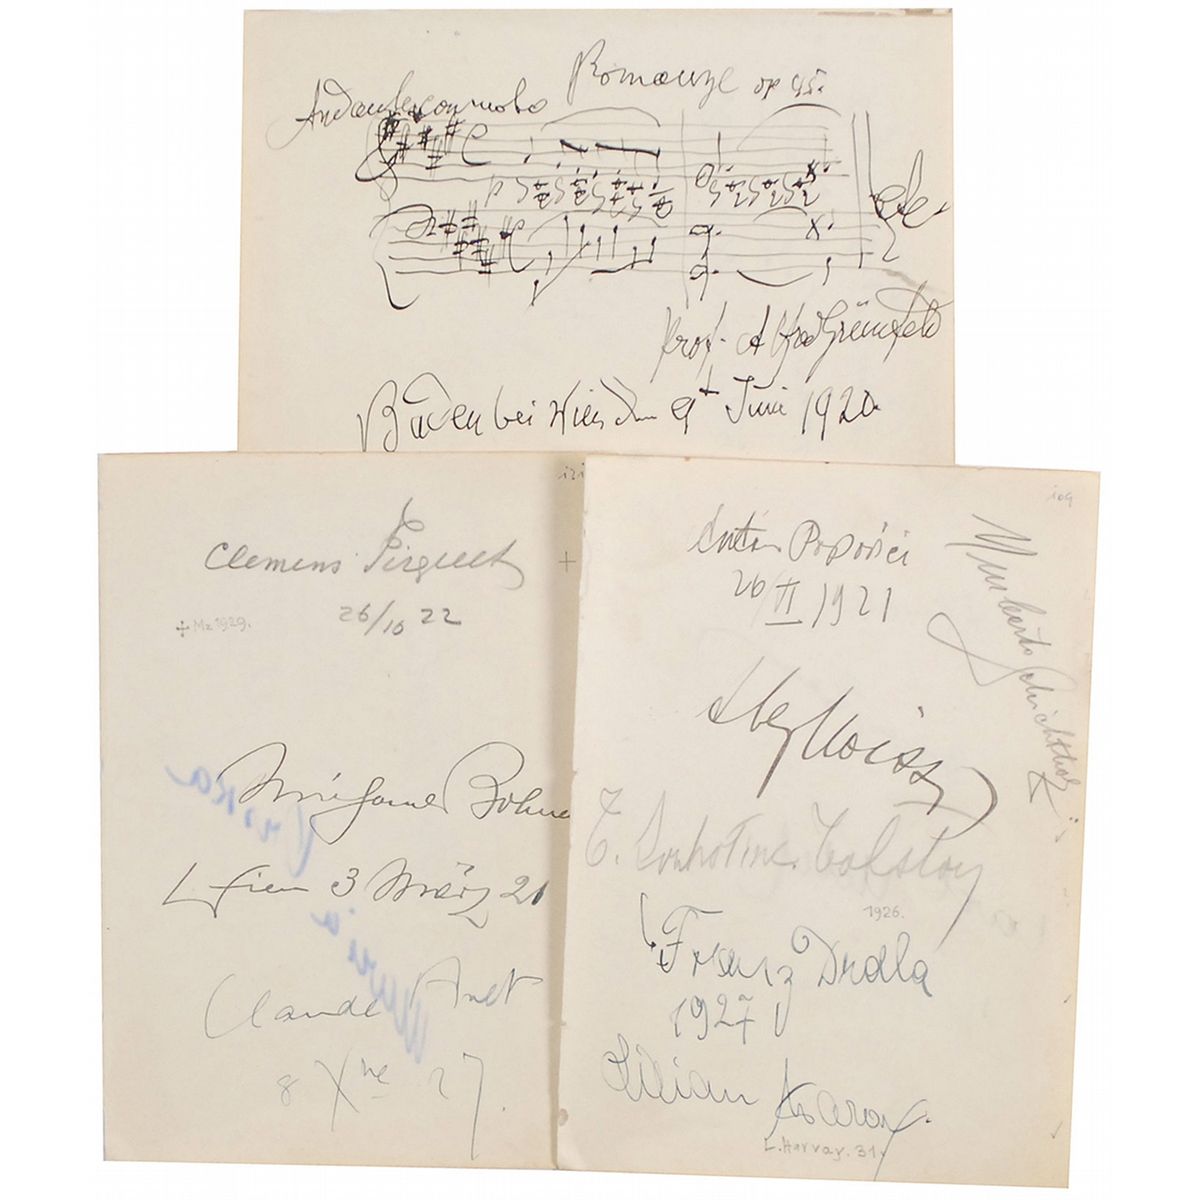 Romanze op 45.
Andante con moto
etc.
Prof. Alfred Grünfeld
Baden bei Wien den 9t Juni 1920.
121
Clemens Pirquet
26/10 22
+ Mz 1929.
+
109
Anton Popovici
26/II 1921
Umberto
Michael Bohnen
Wien 3 März 21
Claude Anet
8 Xbre 27.
T. Soukhotine. Tolstoy
1926.
Franz Drdla
1927
Lilian
L. Harvay. 31.
Maria